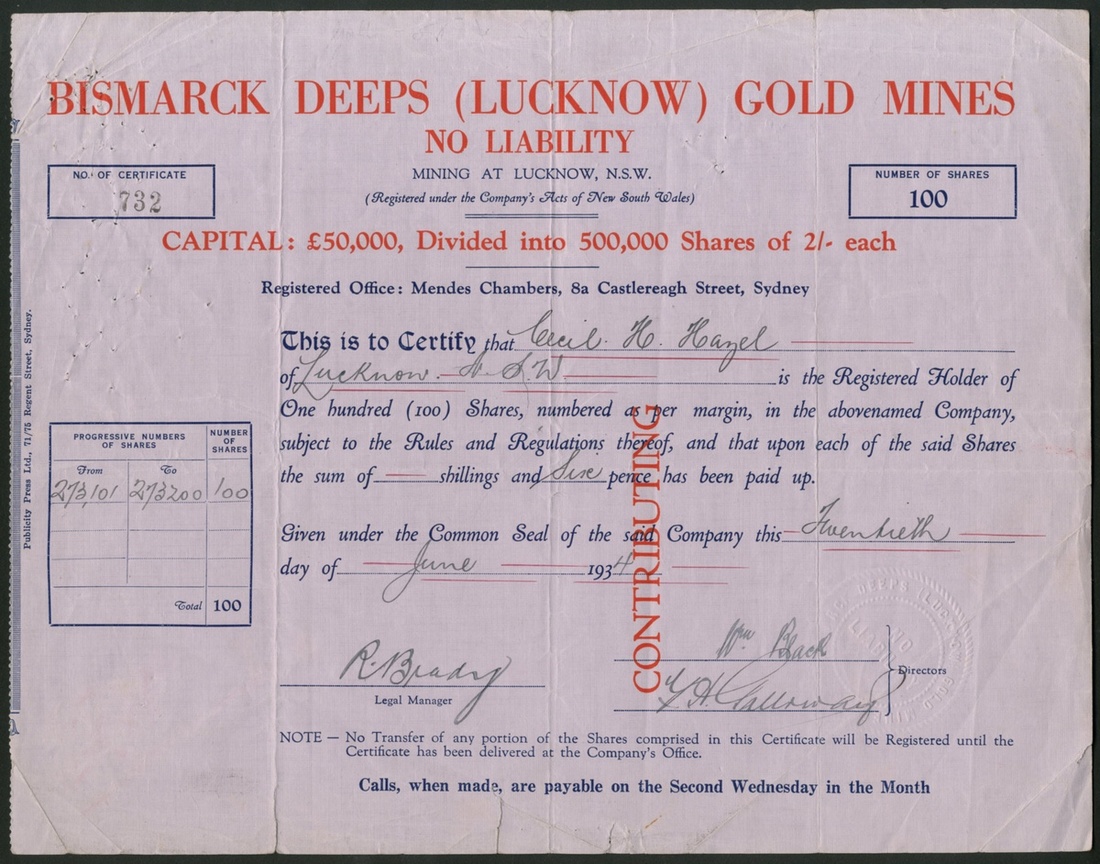 BISMARCK DEEPS (LUCKNOW) GOLD MINES
NO LIABILITY
NO. OF CERTIFICATE
732
MINING AT LUCKNOW, N.S.W.
(Registered under the Company's Acts of New South Wales)
NUMBER OF SHARES
100
CAPITAL: £50,000, Divided into 500,000 Shares of 2/- each
Registered Office: Mendes Chambers, 8a Castlereagh Street, Sydney
This is to Certify that Cecil. H. Hazel
of Lucknow. N.S.W. is the Registered Holder of
One hundred (100) Shares, numbered as per margin, in the abovenamed Company,
subject to the Rules and Regulations thereof, and that upon each of the said Shares
the sum of — shillings and Six pence has been paid up.
Given under the Common Seal of the said Company this Twentieth
day of June 1934
CONTRIBUTING
PROGRESSIVE NUMBERS OF SHARES
NUMBER OF SHARES
From To
273,101 273200 100
Total 100
R. Brady
Legal Manager
Wm Black
H. Galloway
Directors
NOTE — No Transfer of any portion of the Shares comprised in this Certificate will be Registered until the
Certificate has been delivered at the Company's Office.
Calls, when made, are payable on the Second Wednesday in the Month
Publicity Press Ltd., 71/75 Regent Street, Sydney.